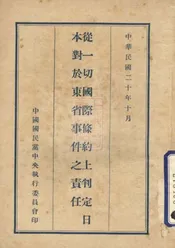 中華民國二十年十月
從一切國際條約上判定日
本對於東省事件之責任
中國國民黨中央執行委員會印